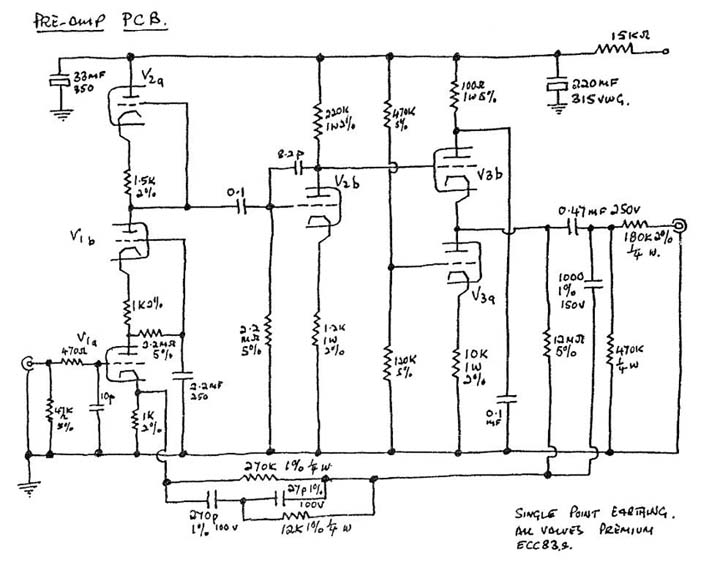 PRE-AMP PCB.
15KΩ
33MF
350
V2a
100Ω
1W 5%
220MF
315VWG.
220K
1W2%
470K
5%
1.5K
2%
8.2p
0.1
V2b
V3b
V1b
0.47MF 250V
180K 2%
¼ W.
1K2%
V3a
1000
1%
150V
V1a
470Ω
2.2MΩ
5%
2.2
MΩ
5%
1.2K
1W
2%
120K
5%
10K
1W
2%
12MΩ
5%
470K
¼
W
10p
2.2MF
250
47K
5%
1K
2%
0.1
MF
270K 1% ¼ W
27p 1%
100V
270p
1% 100V
12K 1% ¼ W
SINGLE POINT EARTHING.
ALL VALVES PREMIUM
ECC83.s.